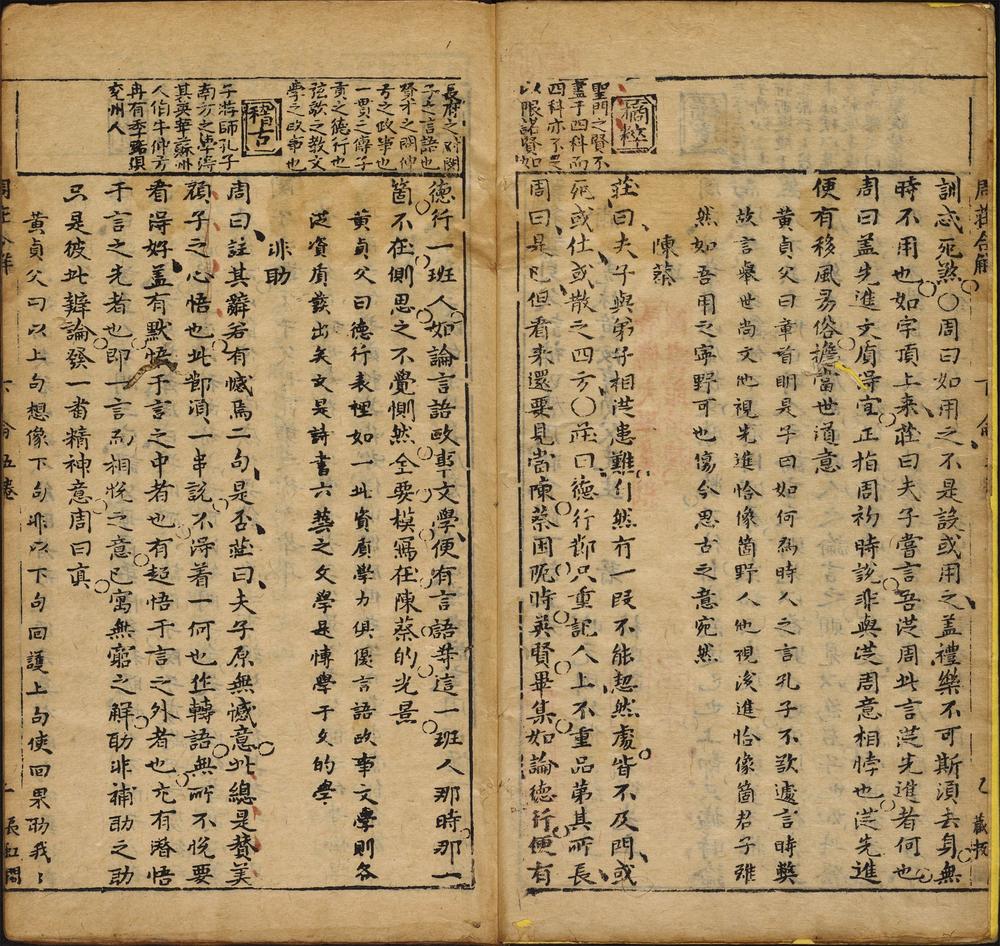 周莊合解
下論
乙
藏板
訓忒死煞○周曰如用之不是設或用之盖禮樂不可斯湏去身無
時不用也如字頂上来莊曰夫子嘗言吾従周此言従先進者何也
周曰盖先進文質得宜正指周初時説非與従周意相悖也従先進
便有移風易俗擔當世道意
黄貞父曰章首明是子曰如何爲時人之言孔子不欲遽言時獘
故言舉世尚文他視先進恰像箇野人他視後進恰像箇君子雖
然如吾用之寧野可也傷今思古之意宛然
陳蔡
莊曰夫子與弟子相従患難行然有一叚不能恝然處皆不及門或
死或仕或散之四方○莊曰德行郡只重記人上不重品第其所長
周曰是已但看来還要見當陳蔡困阨時英賢畢集如論德行便有
摘粹
聖門之賢不
盡于四科而
四科亦不足
以限諸賢如
長府之對閔
子之言語也
賢才之問仲
弓之政事也
一貫之傳子
貢之德行也
弦歌之教文
學之政事也
稽古
子蔣師孔子
南方之學得
其英華蘇州
人伯牛仲弓
冉有季路頊
兖州人
德行一班人如論言語政事文學便有言語等這一班人那時那一
箇不在側思之不覺惻然全要模寫在陳蔡的光景
黄貞父曰德行表裡如一此資質學力俱優言語政事文學則各
従資質發出矣文是詩書六藝之文學是博學于文的學
非助
周曰註其辭若有憾焉二句是否莊曰夫子原無憾意此總是賛美
顔子之心悟也此節湏一串説不得着一何也作轉語無所不悅要
看得好盖有默悟于言之中者也有超悟于言之外者也尤有潜悟
于言之先者也即一言而相悅之意已寓無窮之解助非補助之助
只是彼此辯論發一畨精神意周曰真
黄貞父曰以上句想像下句非以下句回護上句使回果助我